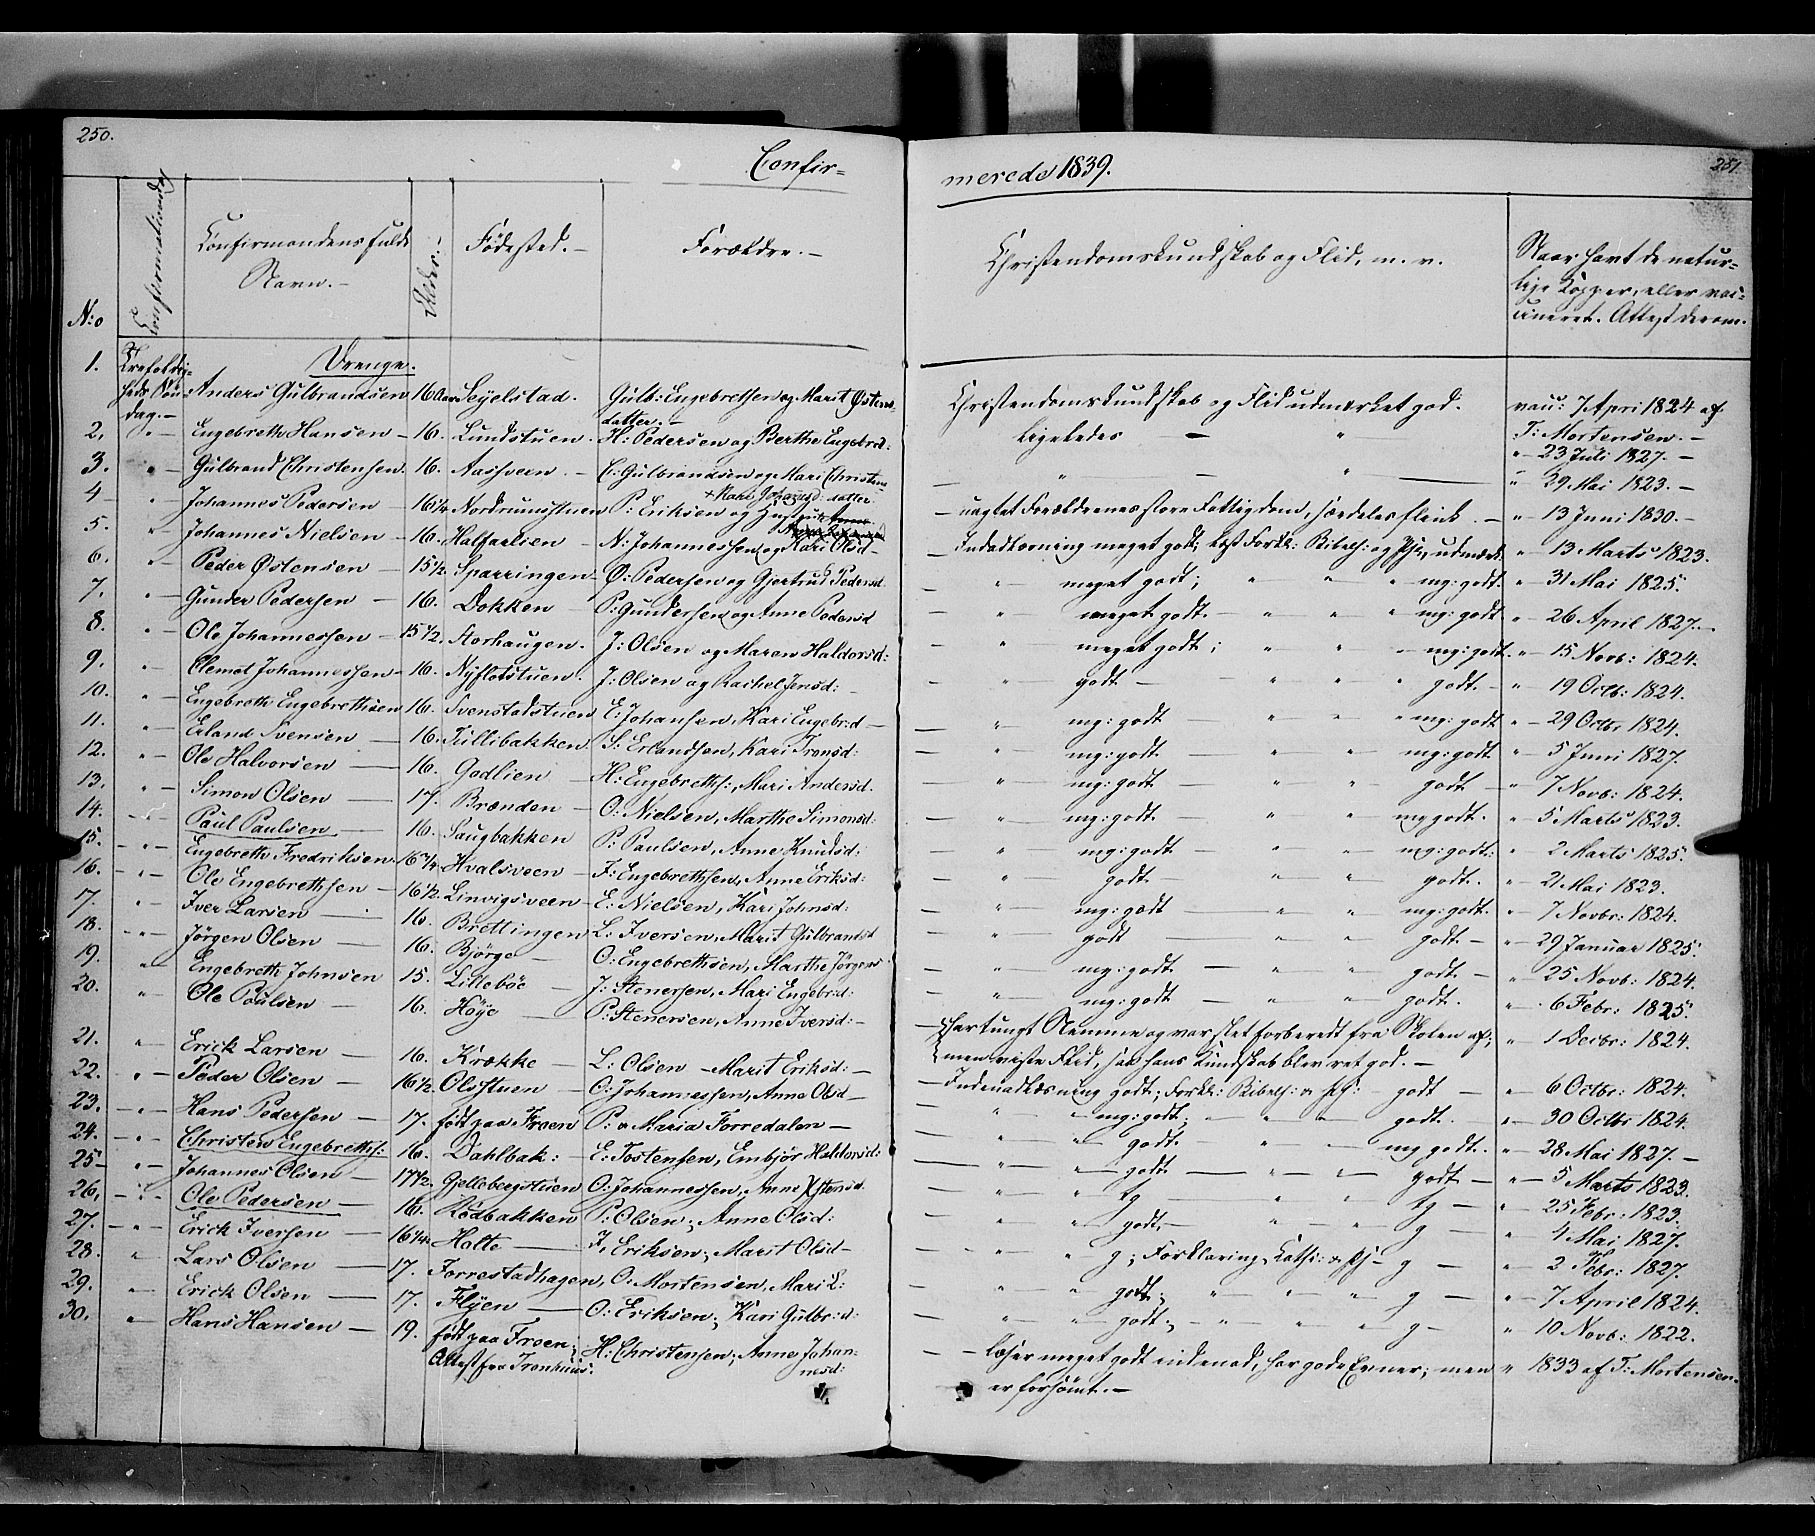 250.
Confir-
merede 1839.
251.
N:o
Confirmationsdag
Confirmandens fulde
Navn.-
Alder.-
Fødested.-
Forældre.-
Christendomskundskab og Flid, m. v.
Naar havt de natur-
lige Kopper, eller vac-
cineret. Attest derom.
Drenge.
1. Trefoldig-
heds Søn- Anders Gulbrandsen 16 Aar Seyelstad. Gulb: Engebrethsen og Marit Østens- Christendomskundskab og Flid udmærket god. vac: 7 April 1824 af
dag.- datter.- T: Mortensen.-
2. " - Engebreth Hansen - 16. Lundstuen. H: Pedersen og Berthe Engebrd: ligeledes - " " 23 Juli 1827.-
3. " - Gulbrand Christensen. 16. Aasveen. - C: Gulbrandsen og Mari Christens- " " " 29 Mai 1823.-
datter
4 " Johannes Pedersen - 16¼ Nordrumstuen P: Eriksen og - uagtet Forældrenes store Fattigdom, særdeles flink. - " 13 Juni 1830.-
5. " Johannes Nielsen - 16. Halfarlien - N: Johannessen og Kari Olsd - - Indenadlæsning meget godt; " 13 Marts 1823.
6. " Peder Østensen - 15½. Sparringen - Ø: Pedersen og Gjertrud Pedersd. " meget godt; " " " mg: godt. " 31 Mai 1825.
7. " Gunder Pedersen - 16. Dokken - P: Gundersen og Anne Pedersd " meget godt. " " " mg: godt " 26 April 1827.-
8. " Ole Johannessen - 15½. Storhaugen. J: Olsen og Maren Haldorsd: " meget godt; " " mg: godt. " 15 Novb: 1824.
9. " Clemet Johannessen - 16. Nyflotstuen. J: Olsen og Rachel Jensd: - " godt - " " godt. - " 19 Octb: 1824.
10. " Engebreth Engebrethsen 16. Svenstadstuen E: Johansen, Kari Engebr:d - " mg: godt " " " mg: godt " 29 Octbr 1824.
11. " Erland Svensen - 16. Tullibakken. S: Erlandsen, Kari Tronsd: " mg: godt " " mg: godt " 5 Juni 1827.
12. " Ole Halvorsen - 16. Godlien - H: Engebreths:, Mari Andersd. " mg: godt " " godt - " 7 Novb: 1824.
13. " Simon Olsen - 17. Brænden - O: Nielsen, Marthe Simonsd: " mg: godt. " " mg godt. " 5 Marts 1823.
14. " Paul Paulsen - 16. Saugbakken P: Paulsen, Anne Knudsd: " mg: godt " " mg: godt: " 2 Marts 1825.
15. " Engebreth Fredriksen. 16¼. Hvalsveen - F: Engebrethsen, Anne Eriksd: " godt - " " godt. " 21 Mai 1823.
16. " Ole Engebrethsen - 16½. Linvigsveen - E: Nielsen, Kari Johnsd: " mg: godt " " mg: godt. " 7 Novbr: 1824.
17. " Iver Larsen - 16. Brettingen L: Iversen, Marit Gulbrandsd " godt - " " godt. - " 29 Januar 1825.
18. " Jörgen Olsen - 16. Bjørge - O: Engebrethsen, Marthe Jørgens " mg: godt. - " " godt. " 25 Novb: 1824.
19. " Engebreth Johnsen 15. Lillebøe - J: Stenersen, Mari Engebrd: " mg: godt - " " godt. " 6 Febr: 1825.
20. " Ole Paulsen - 16. Höye - P: Stenersen, Anne Iversd: - - har tungt Nemme og var slet forberedt fra Skolen af; " 1 Decbr: 1824.
men viste Flid, saa hans Kundskab blev ret god. -
21. " Erick Larsen - 16. Krække - L: Olsen - Marit Eriksd: - - Indenadlæsning godt; Forkl: Bibelh: godt - " 6 Octbr: 1824.
22. " Peder Olsen - 16½ Olsstuen - O: Johannessen, Anne Olsd - " " mg: godt; " " godt. " 30 Octbr 1824.
23. " Hans Pedersen - 17. født paa Froen P: & Maria Forredalen - " " godt. " " mg godt. " 28 Mai 1827.-
24. " Christen Engebrethss: 16. Dahlbak: - E: Tostensen, Embjør Haldorsd: " godt " " godt - " 5 Marts 1823.
25. " Johannes Olsen - 17½. Gillebergstuen O: Johannessen, Anne Østensd. " tg " " tg - " 25 Febr: 1823.
26. " Ole Pedersen - 16. Rødbakken P: Olsen; Anne Olsd: " " godt, - " " g - " 4 Mai 1827.
27. " Erick Iversen - 16¼. Holte - I, Eriksen; Marit Olsd - " " g; Forklaring, g - " 2 Febr: 1827.
28. " Lars Olsen - 17. Forrestadhagen, O: Mortensen, Mari L: " " godt; " " " g - " 7 April 1824.
29. " Erick Olsen - 17. Flyen - O: Eriksen; Kari Gulbr:d: " " godt; - " " " g - " 10 Novb: 1822.
30. " Hans Hansen - 19. født paa Froen; H: Christensen; Anne Johan- - læser meget godt indenad, har gode Evner; men " 1833 af T: Mortensen.
Attest fra Tronhuus. nesd: er forsømt. -